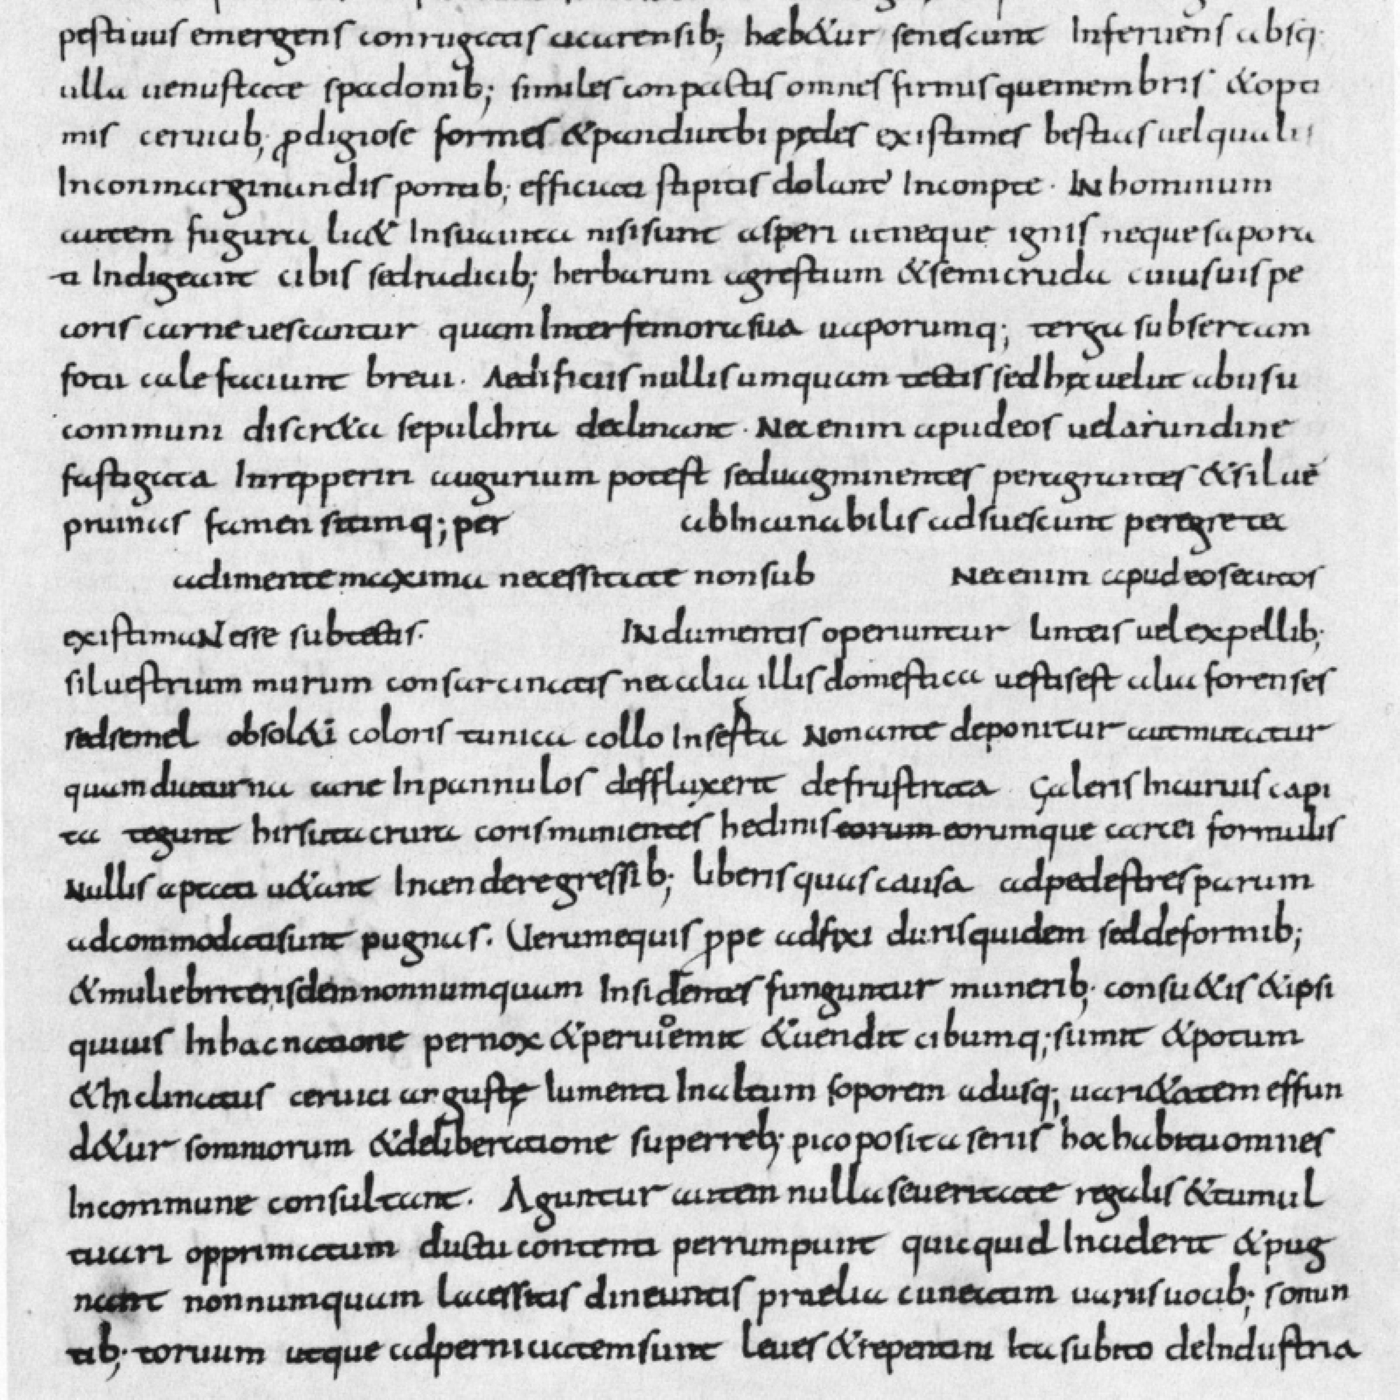 pestiuus emergens conrugatis cicurensib; hæb&ur senescunt Inferuens absq;
ulla uenustate spadonib; similes conpactis omnes firmisque membris &opi
mis ceruicib; prodigiose formes &pandutbi pedes existimes bestias uel quali
Inconmarginandis pontib; efficiati stipitis dolant Inconpte · IN hominum
autem fugura lic& Insuauita nisi sunt asperi utneque ignis neque sapora
ti Indigeant cibis sedradicib; herbarum agrestium &semicruda cuiusuis pe
coris carne uescantur quam Inter femora sua uaporumq; terga subsertam
fotu calefaciunt breui · Aedificiis nullis umquam tectis sed hæc uelut abusu
communi discr&a sepulchra declinant · Nec enim apud eos uel arundine
fastigata Inrepperiri augurium potest seduagminentes peragrantes &silue
pruinas famen sitimq; per ab Incunabilis adsuescunt peregre tec
adimente maxima necessitate non sub Nec enim apud eosecutos
existimaN esse subtectis · INdumentis operiuntur linteis uel expellib;
siluestrium murum consarcinatis nec alia illis domestica uestis est alia forenses
sed semel obsol&i coloris tunica collo Inserta Non ante deponitur aut mutatur
quam diuturna carie Inpannulos deffluxerit defrustrata Galeris Incuruis capi
ta tegunt hirsuta crura coris munientes hedinis eorum eorumque carcei formulis
Nullis aptati u&ant Incenderegressib; liberis quas causa adpedestres parum
adcommodati sunt pugnas · Uerum equis prope adfixi duris quidem sed deformib;
&muliebriterisdem nonnumquam Insidentes funguntur munerib; consu&is &ipsi
quiuis Inhac natione pernox &peruioemit &uendit cibumq; sumit &potum
&Inclinatus ceruici anguste Iumenti Inaltum soporem adusq; uari&atem effun
d&ur somniorum &deliberatione super reb; picoposita seriis hoc habitu omnes
Incommune consultant · Aguntur autem nulla seueritate regalis &tumul
tuari opprimatum ductu contenti perrumpunt quicquid Inciderit &pug
nant nonnumquam lacessitis dineuntis praelia cuneatim uariis uocib; sonan
tib; toruum utque adpernicitatem sunt leues &repentini Ita subito deIndustria